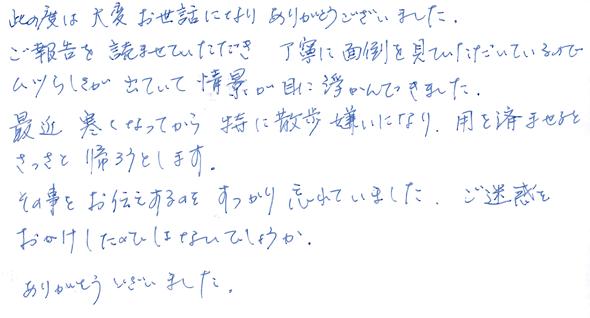 此の度は大変お世話になりありがとうございました.
ご報告を読ませていただき 丁寧に面倒を見ていただいているので
いつらしさが出ていて情景が目に浮かんできました.
最近寒くなってから特に散歩嫌いになり、用を済ませると
さっさと帰ろうとします。
その事をお伝えするのをすっかり忘れていました. ご迷惑を
おかけしたのではないでしょうか.
ありがとうございました.